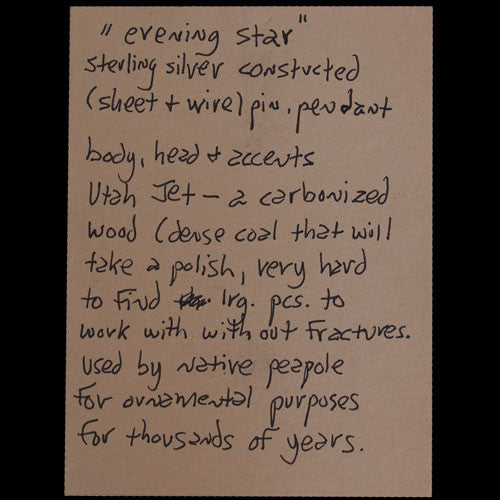 "evening star"
sterling silver constucted
(sheet + wire) pin, pendant
body, head & accents
Utah Jet – a carbonized
wood (dense coal that will
take a polish, very hard
to find lrg. pcs. to
work with with out fractures.
used by native peapole
for ornamental purposes
for thousands of years.